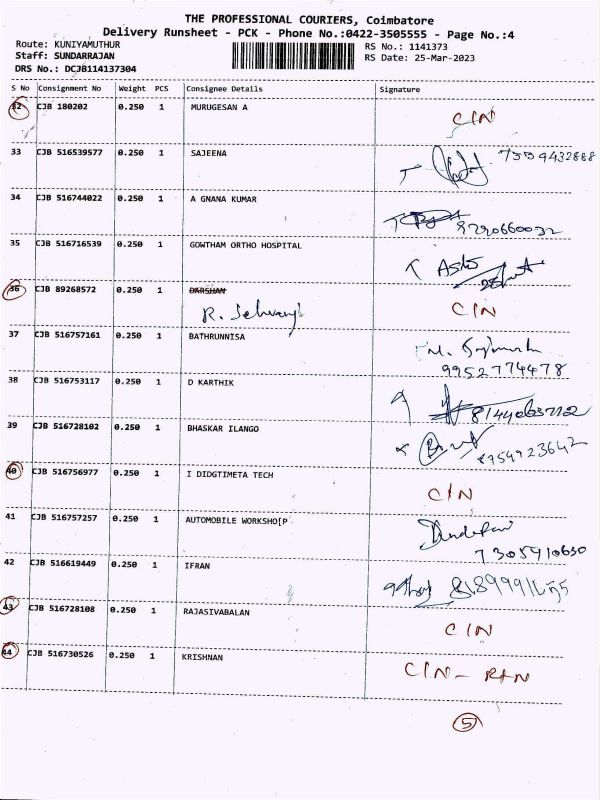 THE PROFESSIONAL COURIERS, Coimbatore
Delivery Runsheet - PCK - Phone No.:0422-3505555 - Page No.:4
Route: KUNIYAMUTHUR
RS No.: 1141373
Staff: SUNDARRAJAN
RS Date: 25-Mar-2023
DRS No.: DCJB114137304
S No Consignment No Weight PCS Consignee Details Signature
32 CJB 180202 0.250 1 MURUGESAN A CIN
33 CJB 516539577 0.250 1 SAJEENA
34 CJB 516744022 0.250 1 A GNANA KUMAR
8290660032
35 CJB 516716539 0.250 1 GOWTHAM ORTHO HOSPITAL
36 CJB 89268572 0.250 1 DARSHAN CIN
R.
37 CJB 516757161 0.250 1 BATHRUNNISA
9952774478
38 CJB 516753117 0.250 1 D KARTHIK
8144063712
39 CJB 516728102 0.250 1 BHASKAR ILANGO
8754923642
40 CJB 516756977 0.250 1 I DIDGTIMETA TECH
CIN
41 CJB 516757257 0.250 1 AUTOMOBILE WORKSHO[P
7305910650
42 CJB 516619449 0.250 1 IFRAN
43 CJB 516728108 0.250 1 RAJASIVABALAN
CIN
44 CJB 516730526 0.250 1 KRISHNAN
CIN - RTN
5